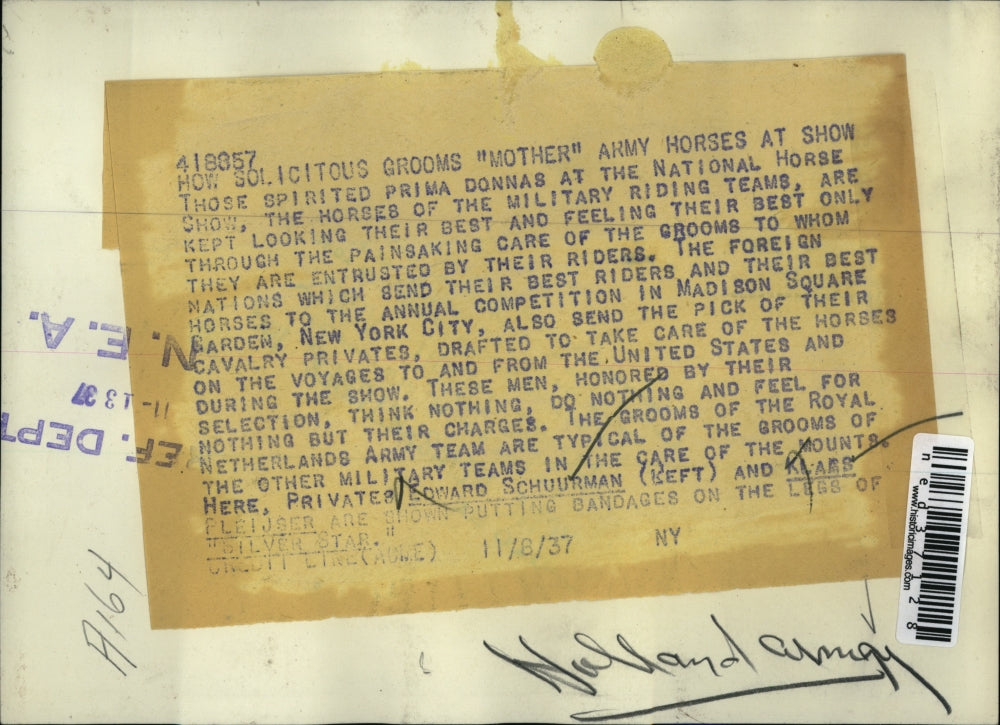 418057
HOW SOLICITOUS GROOMS "MOTHER" ARMY HORSES AT SHOW
THOSE SPIRITED PRIMA DONNAS AT THE NATIONAL HORSE
SHOW, THE HORSES OF THE MILITARY RIDING TEAMS, ARE
KEPT LOOKING THEIR BEST AND FEELING THEIR BEST ONLY
THROUGH THE PAINSAKING CARE OF THE GROOMS TO WHOM
THEY ARE ENTRUSTED BY THEIR RIDERS. THE FOREIGN
NATIONS WHICH SEND THEIR BEST RIDERS AND THEIR BEST
HORSES TO THE ANNUAL COMPETITION IN MADISON SQUARE
GARDEN, NEW YORK CITY, ALSO SEND THE PICK OF THEIR
CAVALRY PRIVATES, DRAFTED TO TAKE CARE OF THE HORSES
ON THE VOYAGES TO AND FROM THE UNITED STATES AND
DURING THE SHOW. THESE MEN, HONORED BY THEIR
SELECTION, THINK NOTHING, DO NOTHING AND FEEL FOR
NOTHING BUT THEIR CHARGES. THE GROOMS OF THE ROYAL
NETHERLANDS ARMY TEAM ARE TYPICAL OF THE GROOMS OF
THE OTHER MILITARY TEAMS IN THE CARE OF THE MOUNTS.
HERE, PRIVATES EDWARD SCHUURMAN (LEFT) AND KLAES
PLEIJSER ARE SHOWN PUTTING BANDAGES ON THE LEGS OF
"SILVER STAR."
CREDIT LINE (ACME) 11/8/37 NY
N. E. A.
11-13 37
REF. DEPT
A164
Holland army
www.historicimages.com
ned37128